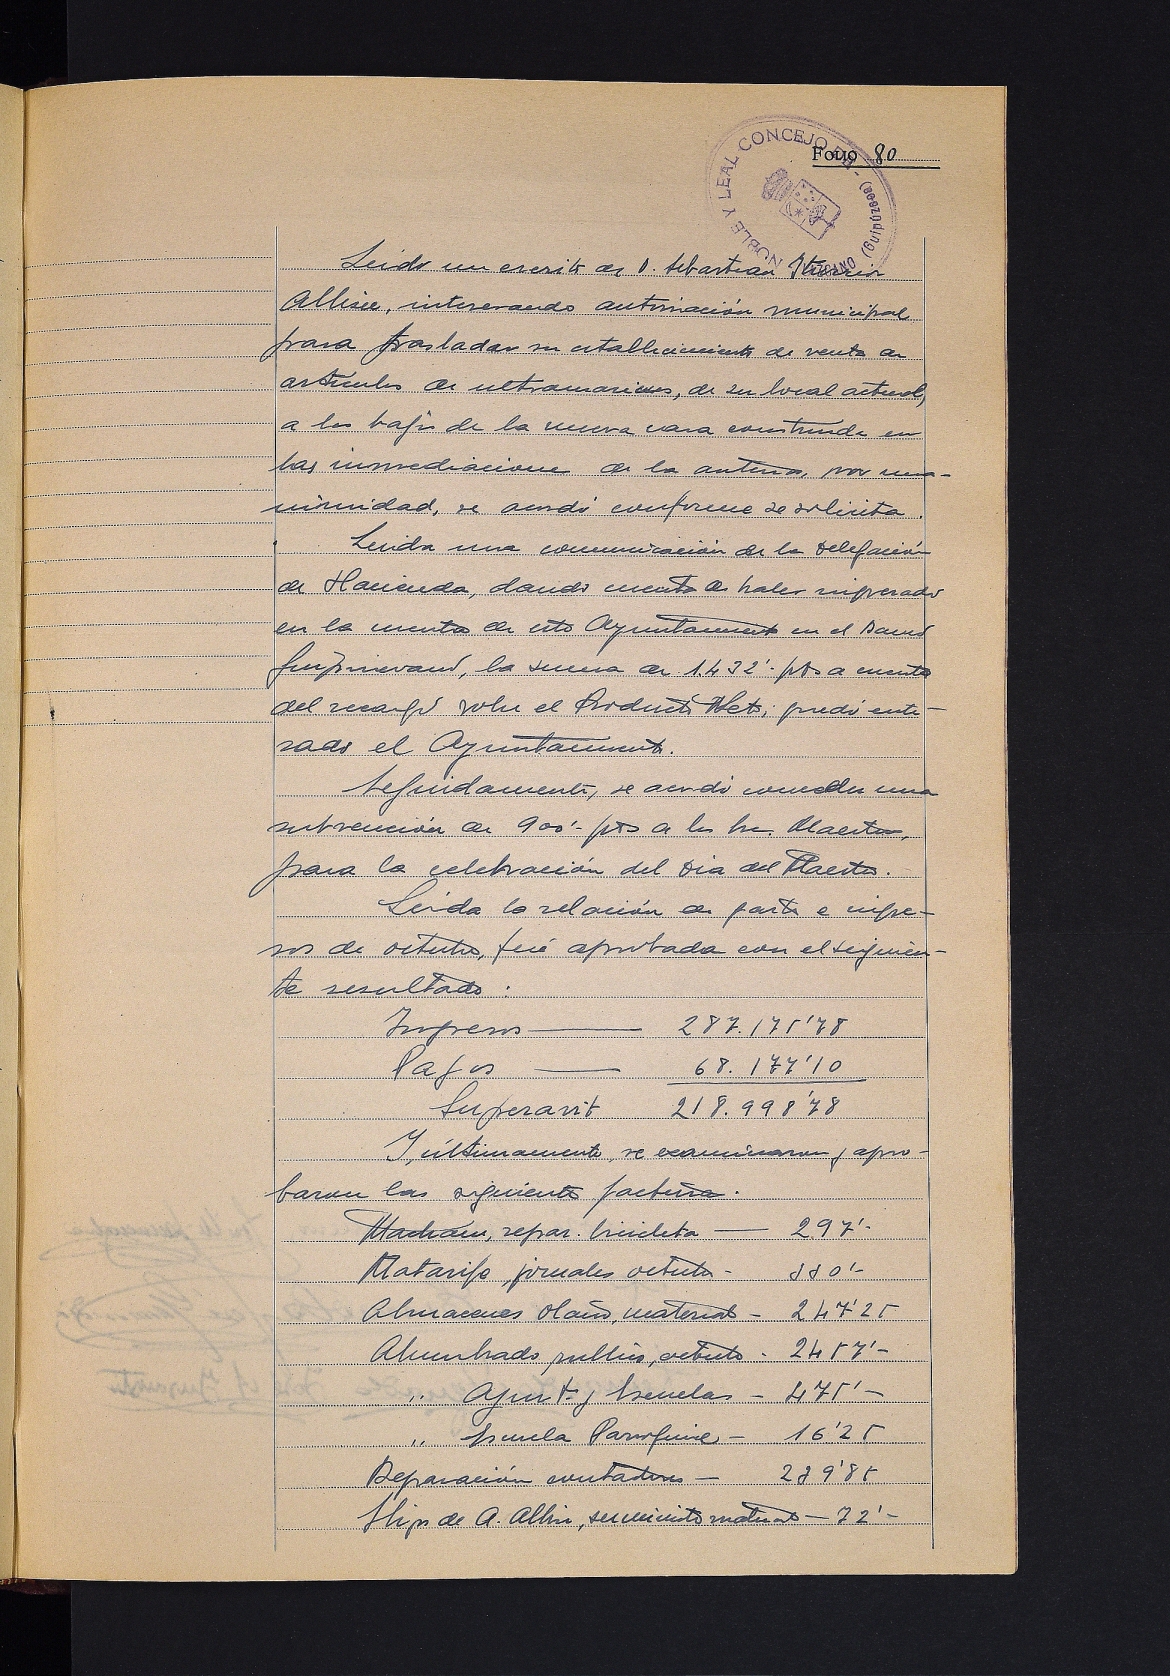 Folio 80
NOBLE Y LEAL CONCEJO DE (Guipúzcoa)
Leido un escrito de D. Sebastian Iturrioz
Albisu, interesando autorización municipal
para trasladar su establecimiento de venta de
articulos de ultramarinos, de su local actual,
a los bajos de la nueva casa construida en
las inmediaciones de la anterior, por una-
nimidad, se acordó conforme se solicita.
Leida una comunicación de la Delegación
de Hacienda, dando cuenta de haber ingresado
en la cuenta de este Ayuntamiento en el Banco
Guipuzcoano, la suma de 1.432'- pts a cuenta
del recargo sobre el Producto Neto; quedó ente-
rado el Ayuntamiento.
Seguidamente, se acordó conceder una
subvención de 900'- pts a los Sres. Maestros,
para la celebración del Dia del Maestro.
Leida la relación de gastos e ingre-
sos de octubre, fué aprobada con el siguien-
te resultado:
Ingresos 287.175'78
Pagos 68.177'10
Superavit 218.998'78
Y, últimamente, se examinaron y apro-
baron las siguientes facturas.
repar. bicicleta — 297'-
Matarife, jornales octubre - 330'-
Almacenes Olano, material - 247'25
Alumbrado público, octubre - 2457'-
,, Ayunt.º y Escuelas - 475'-
,, Escuela Parroquial - 16'25
Reparación contadores — 239'85
Hijos de A. Albisu, suministro material — 72'-